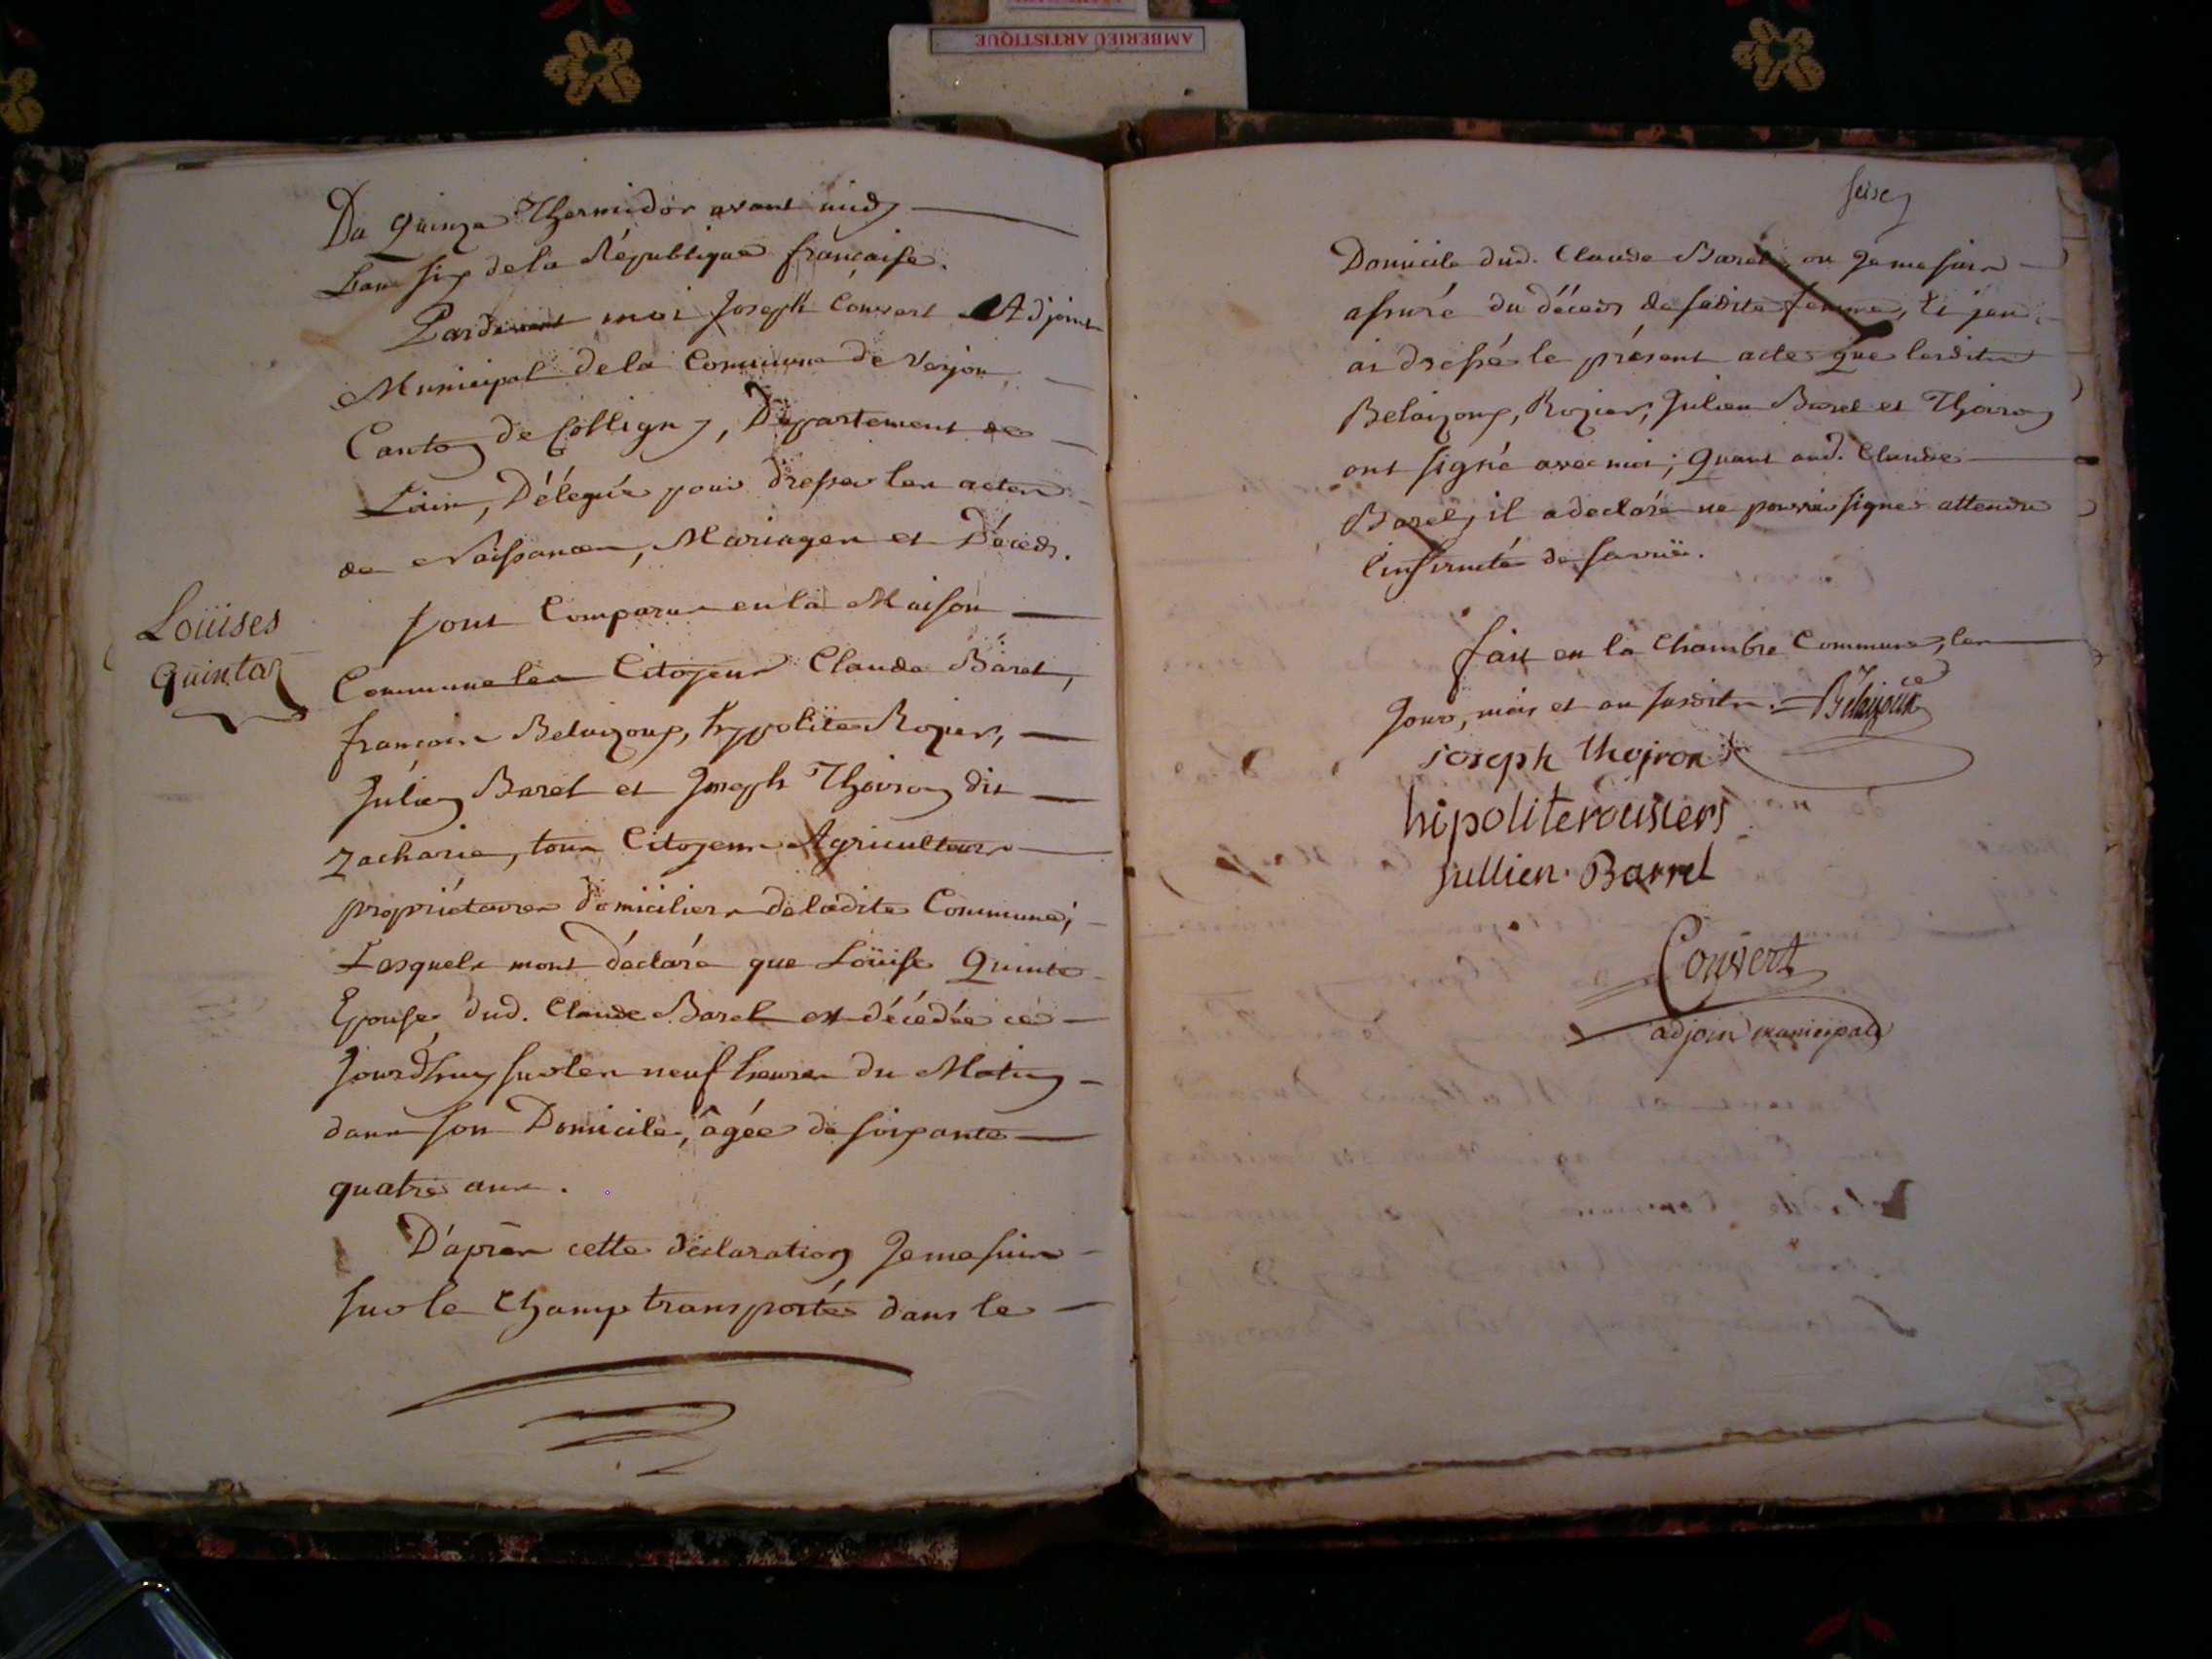 AMBERIEU ARTISTIQUE
Du quinze Thermidor avant midy
L'an six de la République française.
Pardevant moi Joseph Convert Adjoint
Municipal de la Commune de Verjon
Canton de Colligny, Département de
L'ain, Délégué pour dresser les actes
de Naissances, Mariages et Déceds.
Loüises
Quinta
Sont Comparus en la Maison
Commune les Citoyens Claude Barel,
françois Belaizoux, hyppolite Rozier,
Julien Barel et Joseph Thoiron dit
Zacharie, tous Citoyens Agriculteurs
propriétaires domiciliers de ladite Commune;
Lesquels mont déclaré que Loüise Quinte
Epouse dud. Claude Barel est décédée ce
Jourd'huy sur les neuf heures du Matin
dans son Domicile, âgée de soixante
quatre ans.
D'après cette déclaration Je me suis
sur le Champ transporté dans le
seize
Domicile dud. Claude Barel, ou Je me suis
assuré du décès de sadite femme, Et j'en
ai dressé le présent acte que lesdits
Belaizoux, Rozier, Julien Barel et Thoiron
ont signé avec moi; Quant aud. Claude
Barel, il a declaré ne pouvoir signer attendu
l'infirmité de sa vüe.
fait en la Chambre Commune, les
Jour, mois et an susdits. Belaijoux
joseph thojron
hipoliterousiers
jullien Barrel
Convert
adjoin municipale